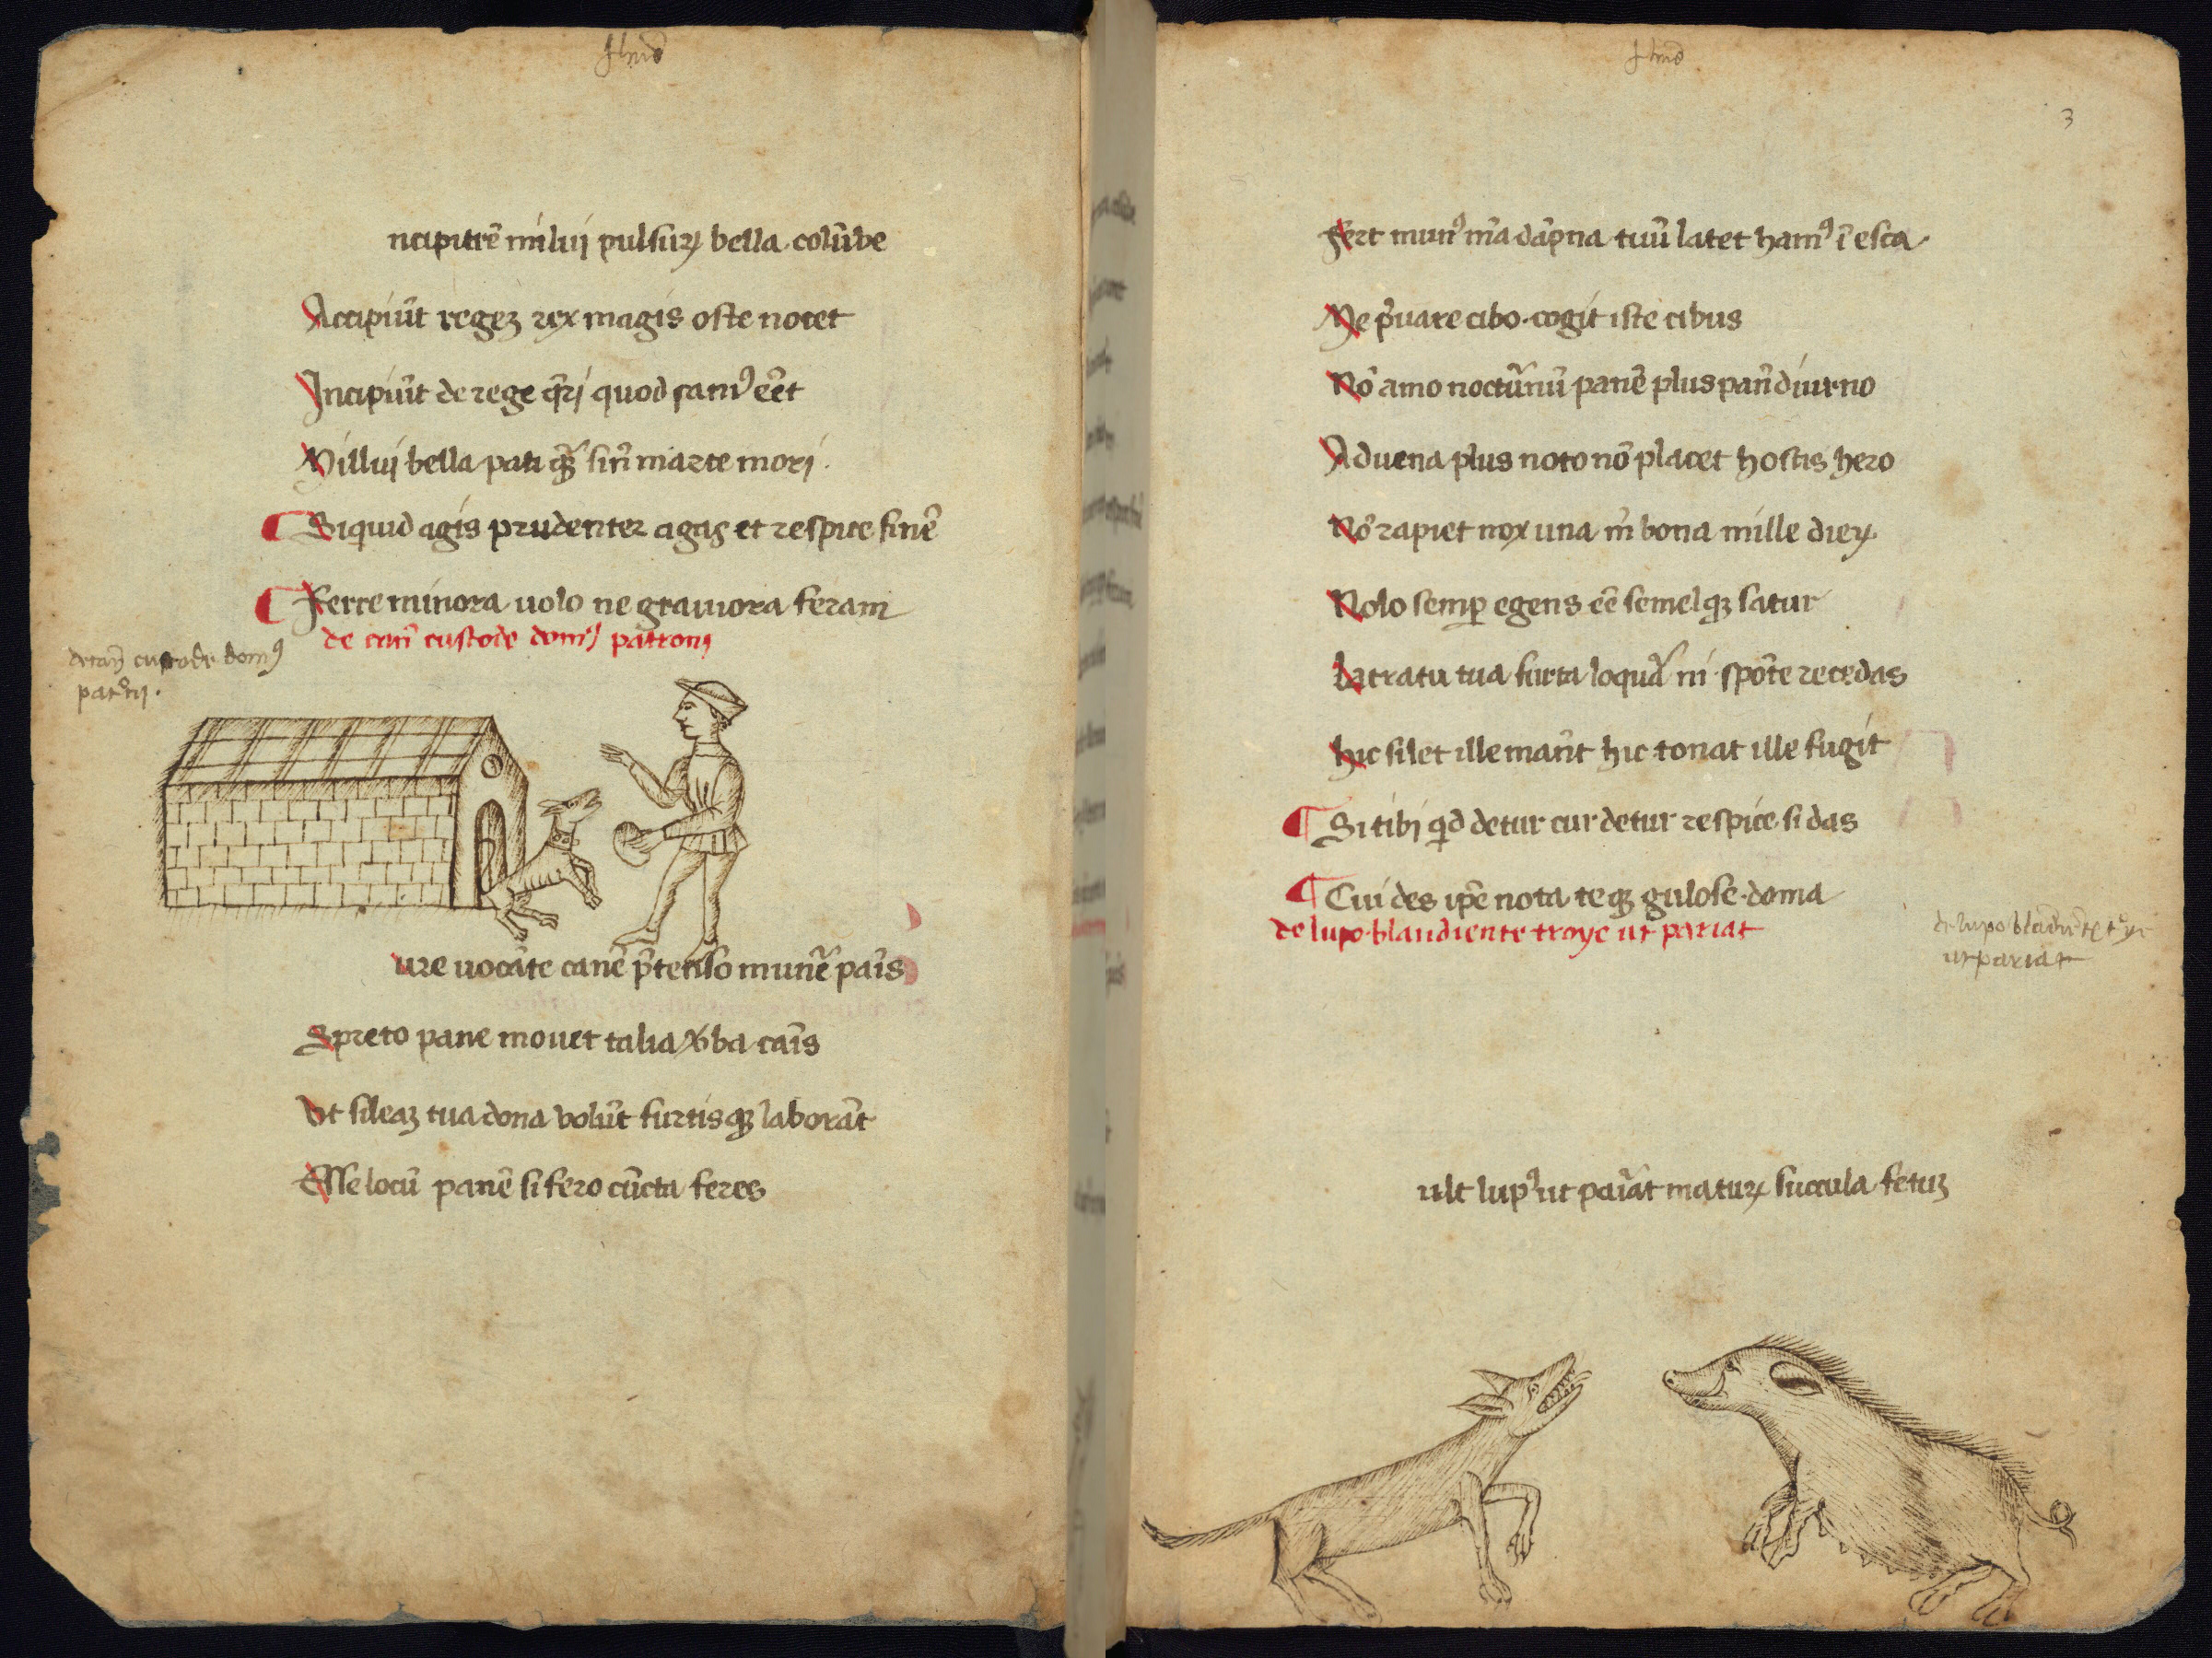 ncipitrē milui pulsuꝝ bella colūbe
Accipiūt regeꝫ rex magis oste nocet
Incipiūt de rege q̄ri quod sani⁹ eēt
Millui bella pati qꝫ̄ sin̄ marte mori.
¶ Siquid agis prudenter agas et respice finē
¶ Ferre minora uolo ne grauiora feram
de can̄ custode dom⁹ patroni
de can̄ custode dom⁹
pat°ni.
ure uocāte canē p̄tenso mun̄e pāis
Spreto pane mouet talia v̄ba cāis
Vt sileaꝫ tua dona volūt furtisqꝫ laborāt
Esse locū panē si fero cūcta feres
3
Fert mun⁹ m̄a dāpna tuū latet ham⁹ ī esca.
Me p̄uare cibo. cogit iste cibus
Nō amo noctūnū panē plus pan̄ diurno
Aduena plus noto nō placet hostis hero
Nō rapiet nox una m̄ bona mille dieꝝ
Nolo semꝑ egens eē semelqꝫ satur
Latratu tua furta loquar̄ ni spōte recedas
hic silet ille man̄t hic tonat ille fugit
¶ Si tibi qd̄ detur cur detur respice si das
¶ Cui des ip̄e nota teqꝫ gulose. doma
de lupo. blandiente troye ut pariat
de lupo blādiēte t°ye
ut pariat
ult lup⁹ ut pariat maturꝝ succula fetuꝫ